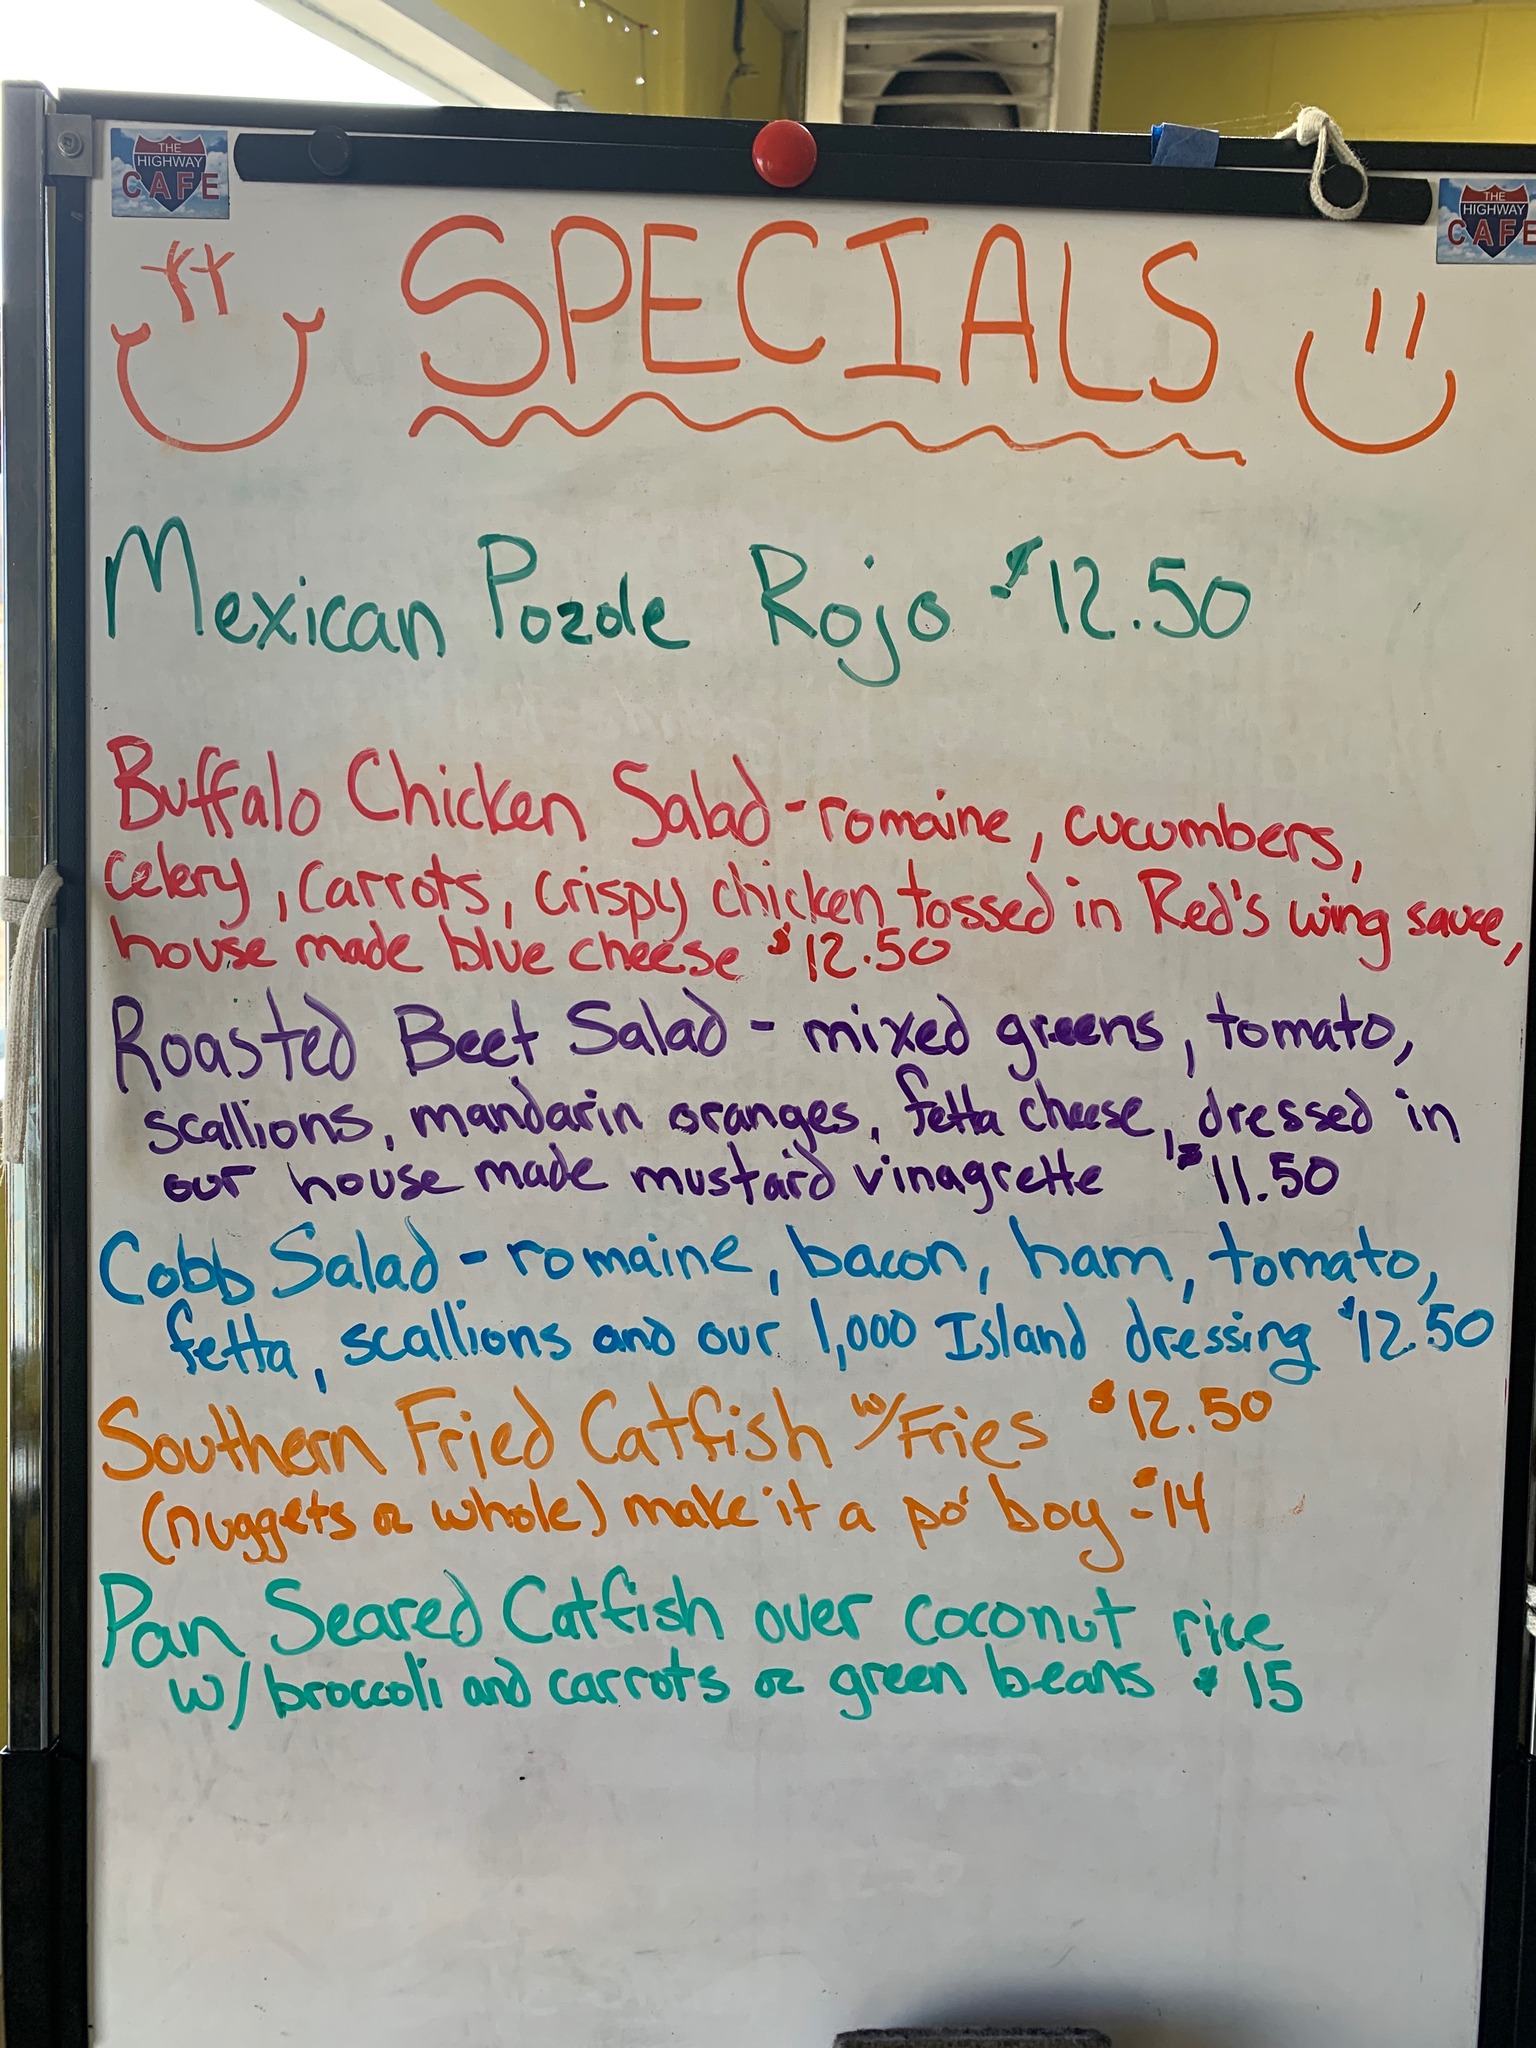 THE
HIGHWAY
CAFE
THE
HIGHWAY
CAFE
SPECIALS
Mexican Pozole Rojo $12.50
Buffalo Chicken Salad - romaine, cucumbers,
celery, carrots, crispy chicken tossed in Red's wing sauce,
house made blue cheese $12.50
Roasted Beet Salad - mixed greens, tomato,
scallions, mandarin oranges, fetta cheese, dressed in
our house made mustard vinagrette $11.50
Cobb Salad - romaine, bacon, ham, tomato,
fetta, scallions and our 1,000 Island dressing $12.50
Southern Fried Catfish w/Fries $12.50
(nuggets or whole) make it a po' boy - $14
Pan Seared Catfish over coconut rice
w/ broccoli and carrots or green beans $15